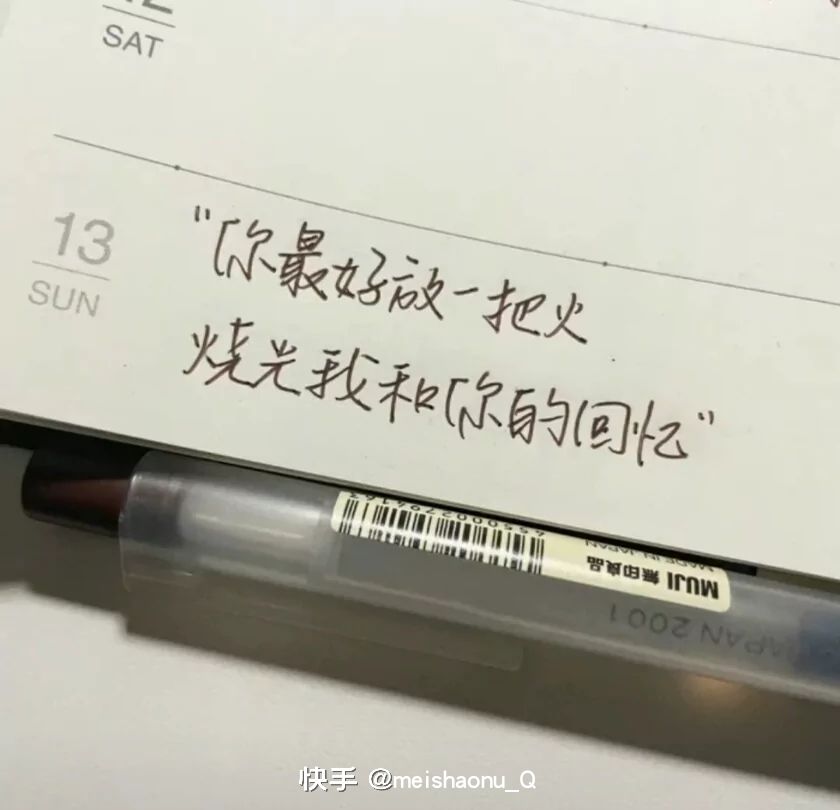 SAT
13
SUN
"你最好放一把火
烧光我和你的回忆"
MUJI 無印良品
MADE IN JAPAN
JAPAN 2001
快手 @meishaonu_Q